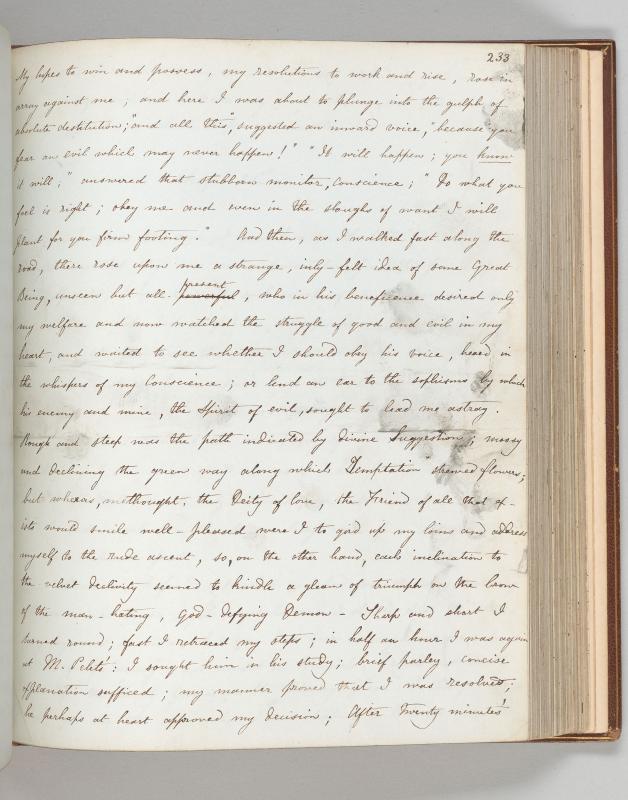 233
My hopes to win and possess, my resolutions to work and rise, rose in
array against me; and here I was about to plunge into the gulph of
absolute destitution; "and all this", suggested an inward voice, "because you
fear an evil which may never happen!" "It will happen; you know
it will;" answered that stubborn monitor, Conscience; "Do what you
feel is right; obey me and even in the sloughs of want I will
plant for you firm footing." And then, as I walked fast along the
road, there rose upon me a strange, inly-felt idea of some Great
Being, unseen but all-powerful present, who in his beneficence desired only
my welfare and now watched the struggle of good and evil in my
heart, and waited to see whether I should obey his voice, heard in
the whispers of my Conscience; or lend an ear to the sophisms by which
his enemy and mine, the Spirit of evil, sought to lead me astray.
Rough and steep was the path indicated by divine Suggestion; mossy
and declining the green way along which Temptation strewed flowers;
but whereas, methought, the Deity of love, the Friend of all that ex-
ists would smile well-pleased were I to gird up my loins and address
myself to the rude ascent, so, on the other hand, each inclination to
the velvet declivity seemed to kindle a gleam of triumph on the brow
of the man-hating, God-defying Demon - Sharp and short I
turned round; fast I retraced my steps; in half an hour I was again
at M. Pelet's: I sought him in his study; brief parley, concise
explanation sufficed; my manner proved that I was resolved;
he perhaps at heart approved my decision; After twenty minutes'